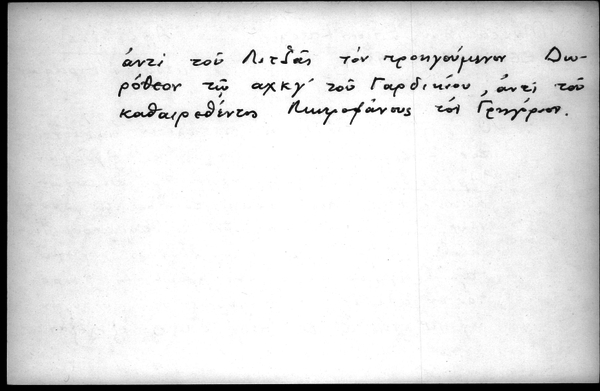 ἀντὶ τοῦ Λιτζᾶς τὸν προηγούμενον Δω-
ρόθεον τῷ αχκγ´ τοῦ Γαρδικίου, ἀντὶ τοῦ
καθαιρεθέντος Μητροφάνους τὸν Γρηγόριον.